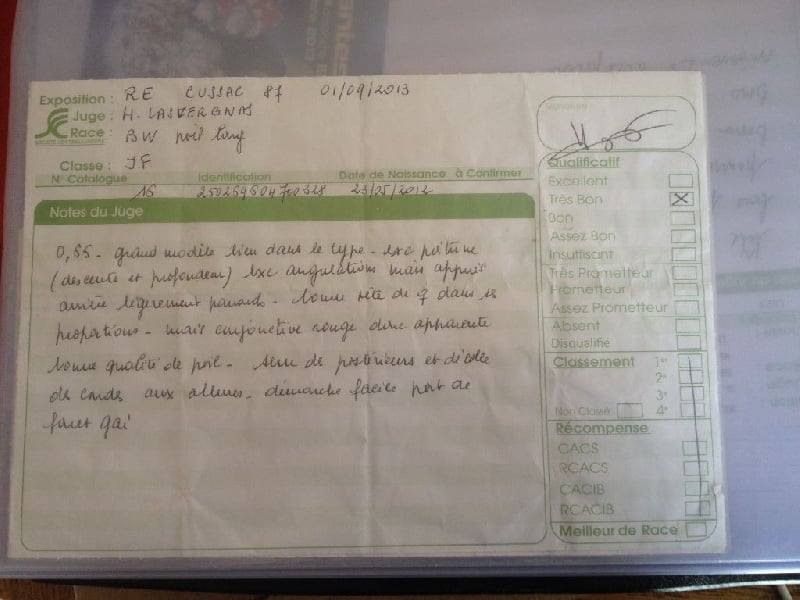 Exposition : RE CUSSAC 87 01/09/2013
Juge : H. LASVERGNAS
Race : BW poil long
Classe : JF
N° Catalogue Identification Date de Naissance à Confirmer
16 250269604700328
Notes du Juge
0,65 - grand modèle bien dans le type - exc poitrine
(descente et profondeur) exc angulations mais
arrière légèrement - bonne tête de ♀ dans ses
proportions - mais conjonctive rouge donc apparente
bonne qualité de poil - serre de postérieurs et décolle
de coudes aux allures - démarche facile port de
fouet gai
Signature
Qualificatif
Excellent
Très Bon X
Bon
Assez Bon
Insuffisant
Très Prometteur
Prometteur
Assez Prometteur
Absent
Disqualifié
Classement 1er
2e
3e
Non Classé 4e
Récompense
CACS
RCACS
CACIB
RCACIB
Meilleur de Race